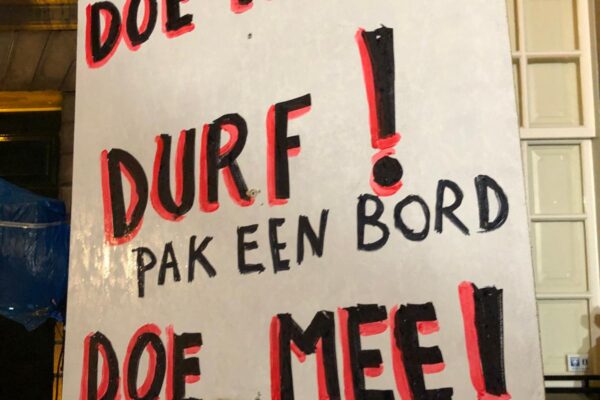 DOE
DURF!
PAK EEN BORD
DOE MEE!